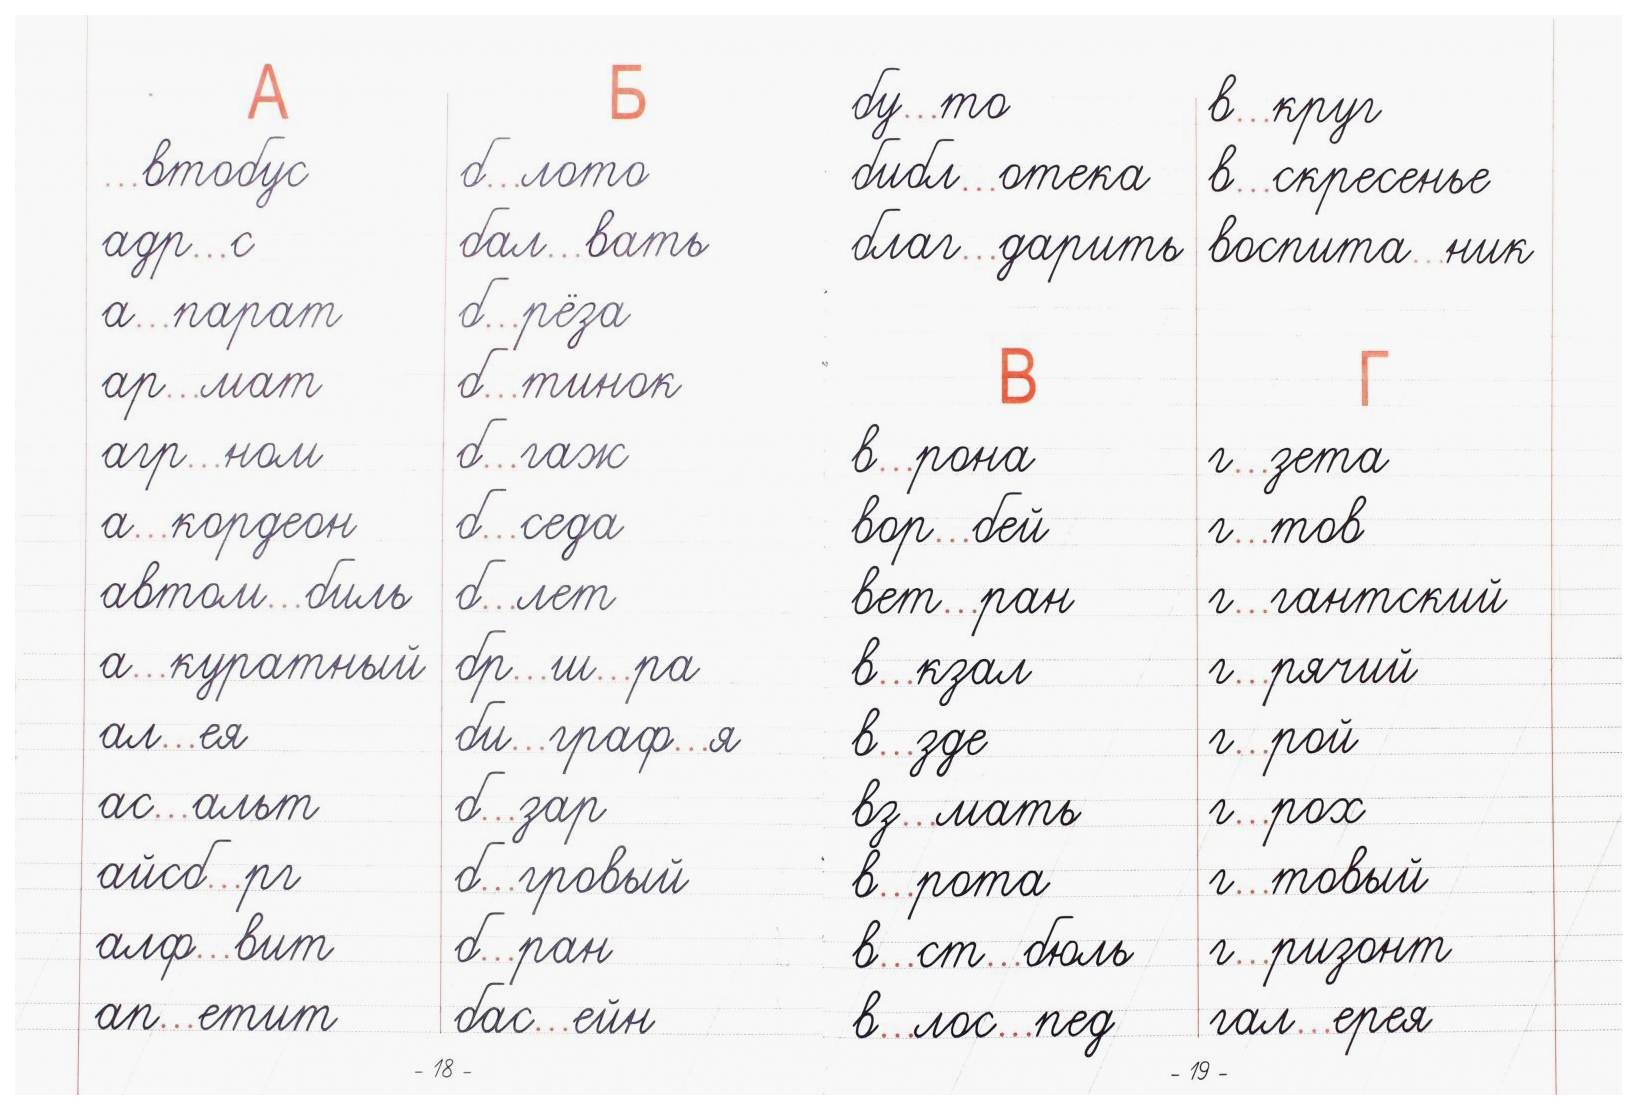 А
...втобус
адр...с
а...парат
ар...мат
агр...ном
а...кордеон
автом...биль
а...куратный
ал...ея
ас...альт
айсб...рг
алф...вит
ап...етит
Б
б...лото
бал...вать
б...рёза
б...тинок
б...гаж
б...седа
б...лет
бр...ш...ра
би...граф...я
б...зар
б...гровый
б...ран
бас...ейн
- 18 -
бу...то
библ...отека
благ...дарить
В
в...рона
вор...бей
вет...ран
в...кзал
в...зде
вз...мать
в...рота
в...ст...бюль
в...лос...пед
в...круг
в...скресенье
воспита...ник
Г
г...зета
г...тов
г...гантский
г...рячий
г...рой
г...рох
г...товый
г...ризонт
гал...ерея
- 19 -